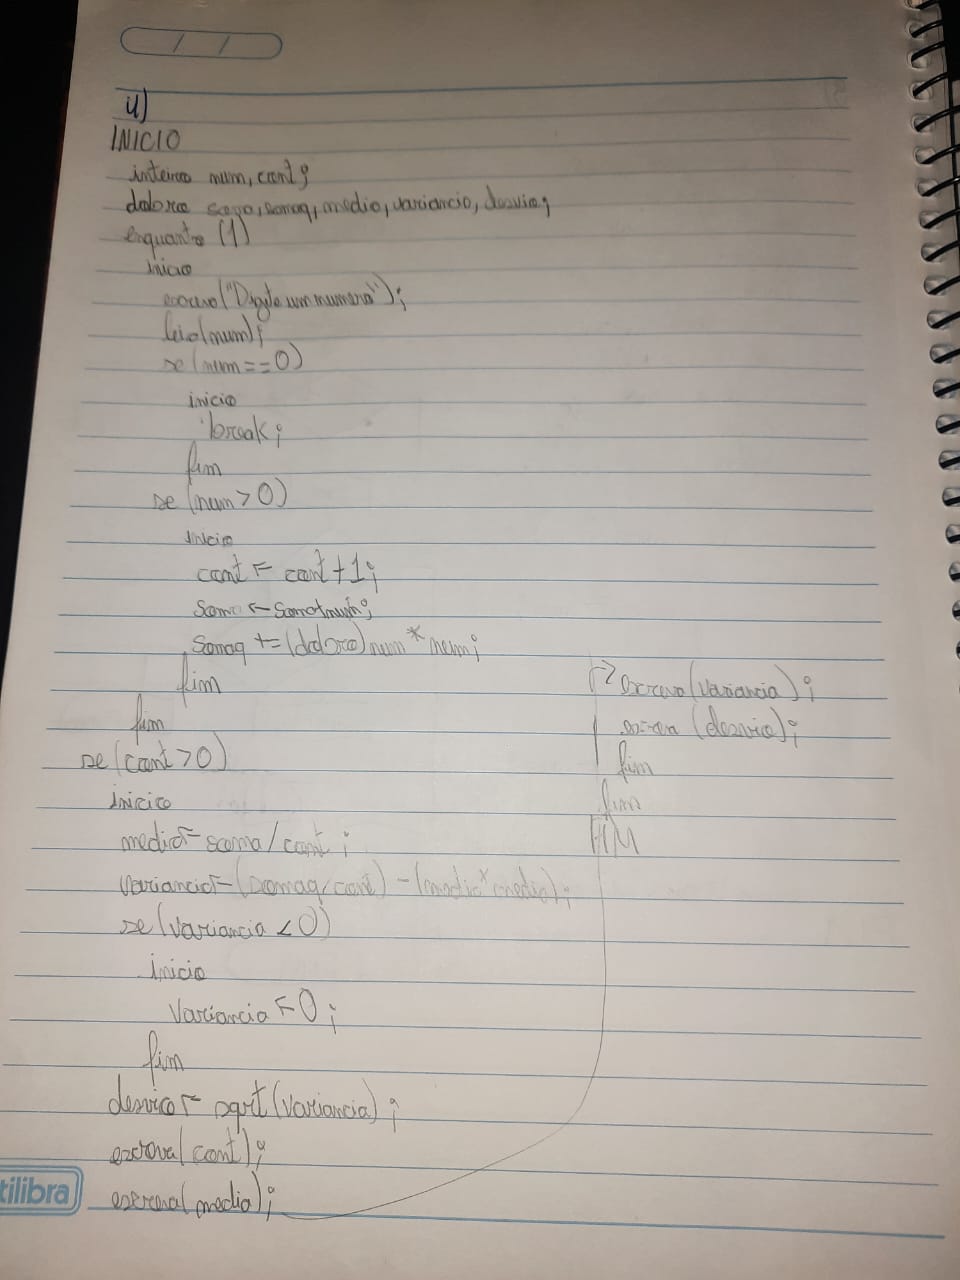 4)
INICIO
inteiro num, cont;
somaq, media, variancia, desvio;
enquanto (1)
inicio
escreva("Digite um numero");
leia(num);
se (num==0)
inicio
break;
fim
se (num>0)
inicio
cont ← cont+1;
soma ← soma+num;
somaq += num*num;
fim
fim
se (cont>0)
inicio
media ← soma/cont;
variancia ← (somaq/cont) - (media*media);
se (variancia <0)
inicio
variancia ← 0;
fim
desvio ← sqrt(variancia);
escreva(cont);
escreva(media);
escreva(variancia);
escreva (desvio);
fim
fim
FIM
tilibra